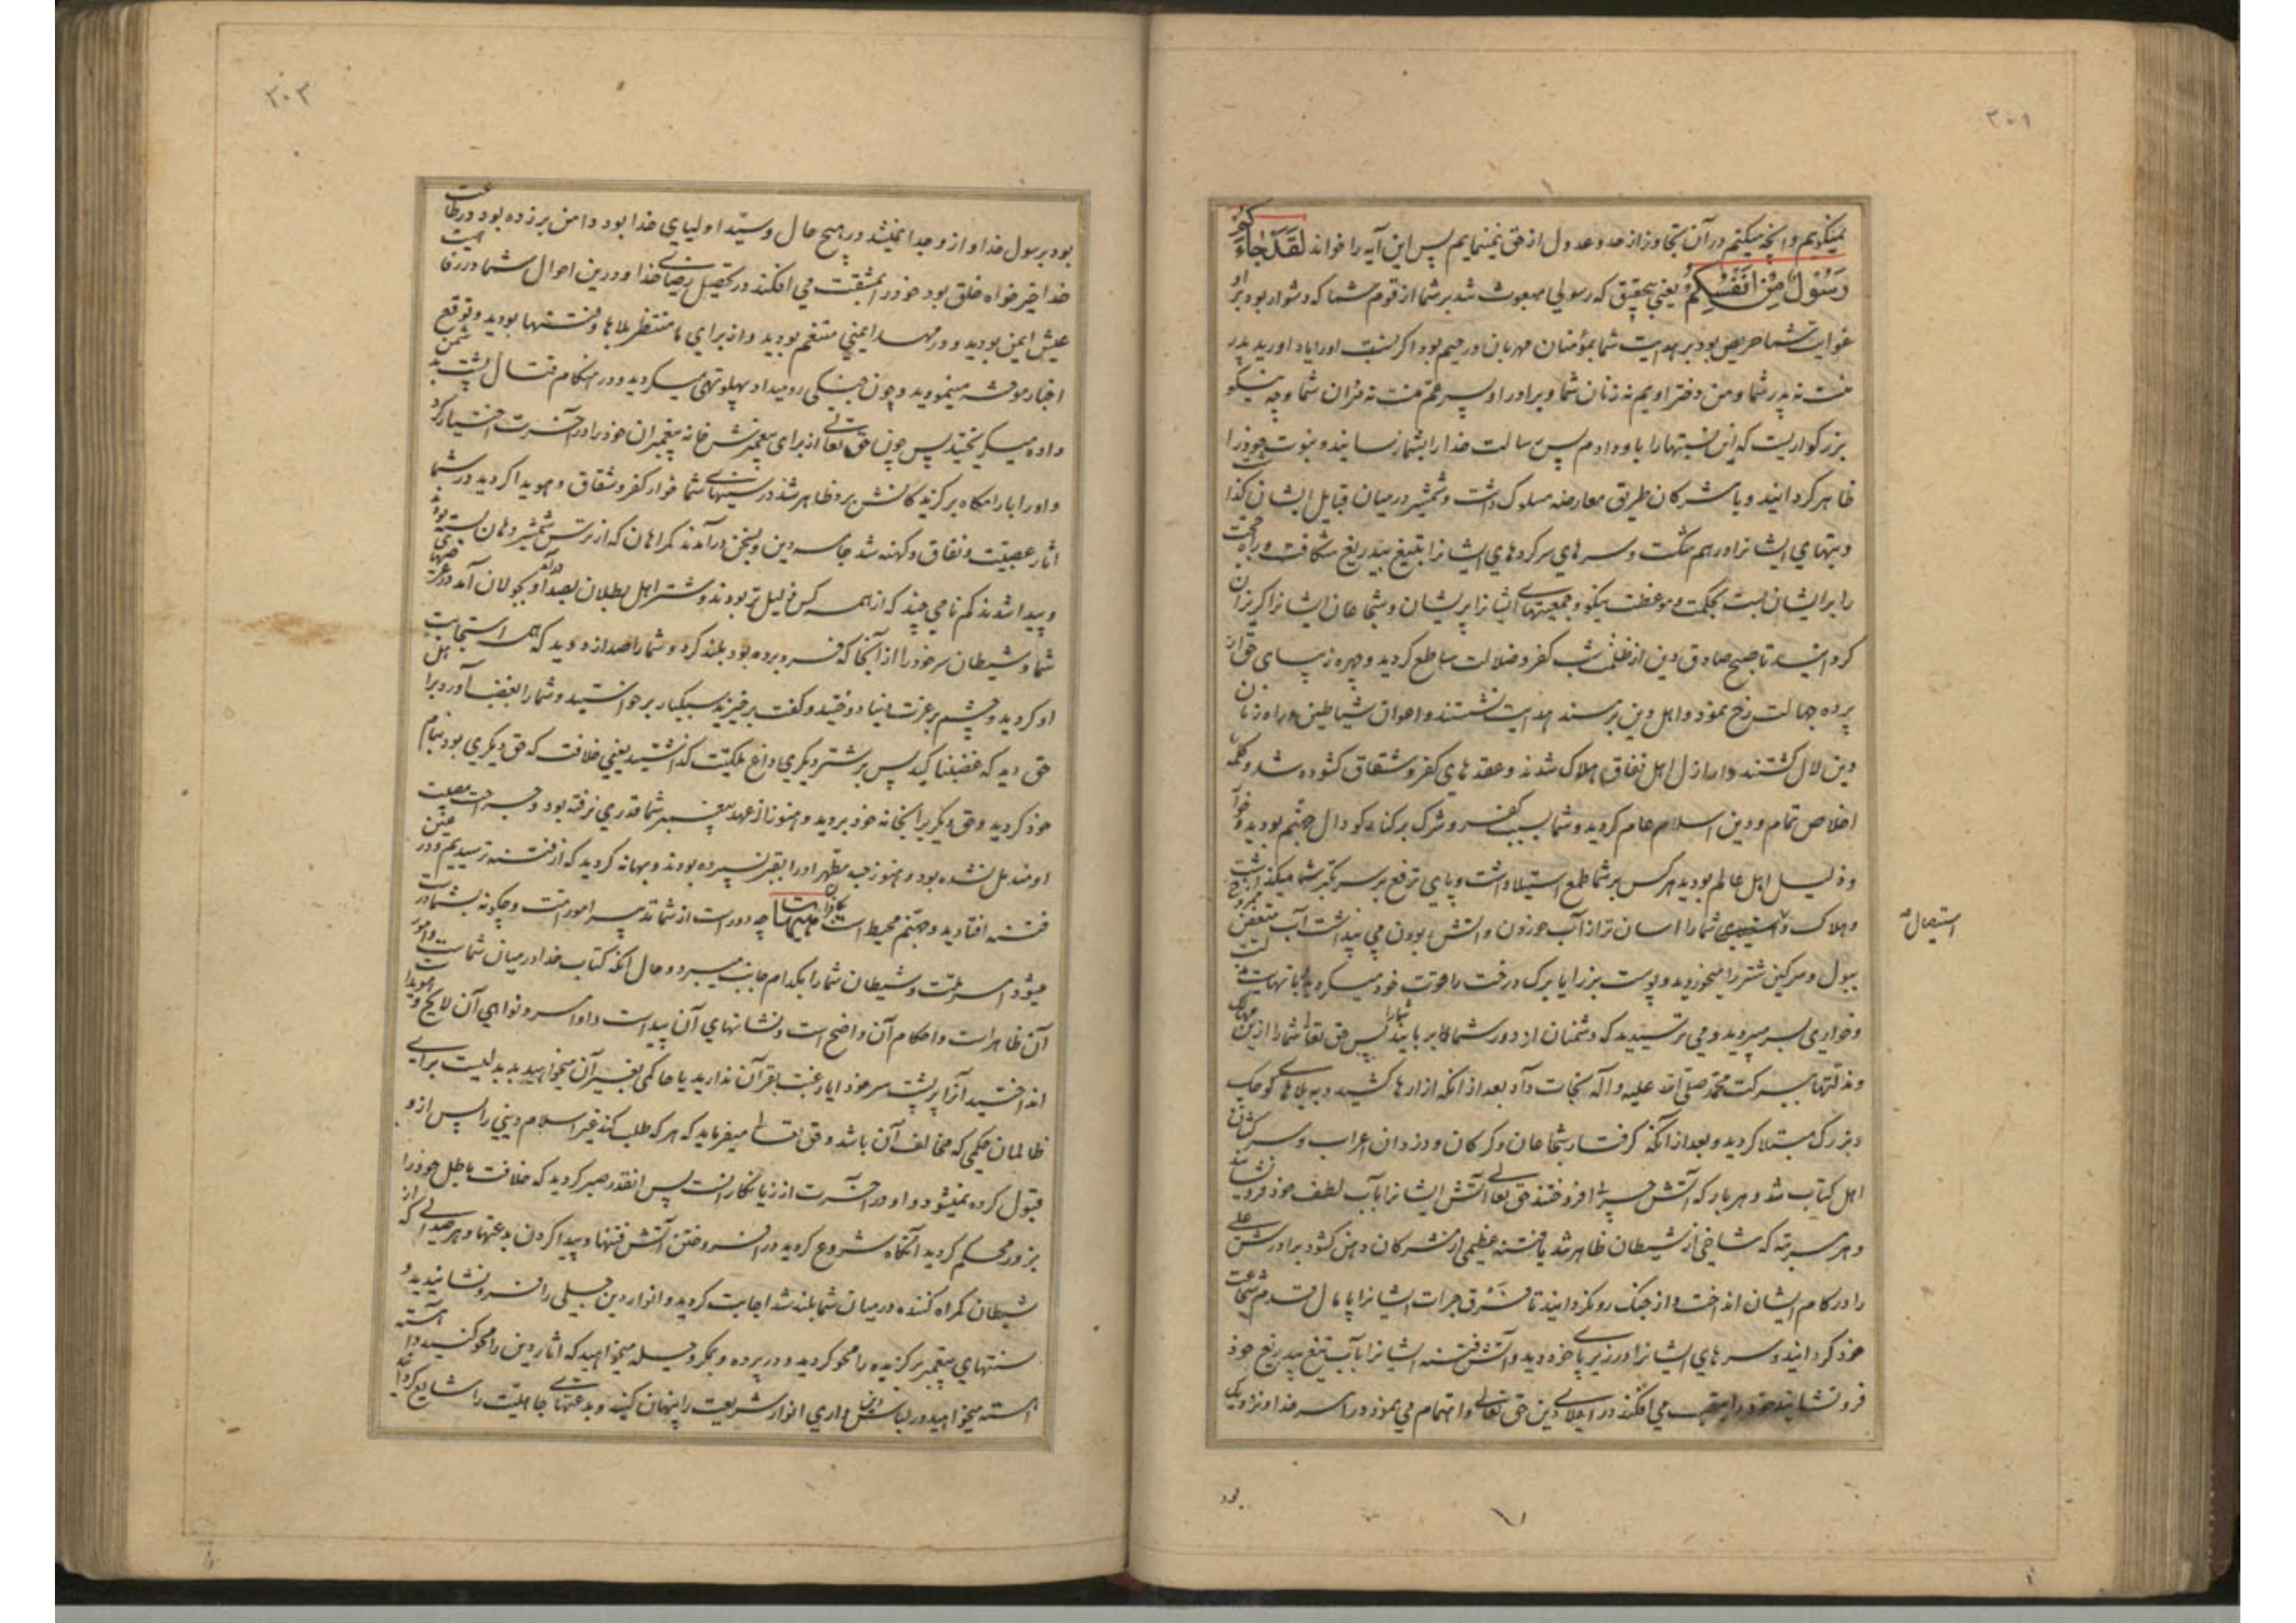 ۳۰۱
نمیگویم و آنچه میکنم در آن تجاوز از حد و عدول از حق نمینمایم پس این آیه را خواند لَقَدْ جَاءَكُمْ
رَسُولٌ مِنْ أَنْفُسِكُمْ یعنی بتحقیق که رسولی مبعوث شد بر شما از قوم شما که دشوار بود بر او
غوایت شما حریص بود بر هدایت شما بمؤمنان مهربان و رحیم بود اگر نسبت او را یاد اورید پدر
منست نه پدر شما و من دختر اویم نه زنان شما و برادر او پسر عم منست نه مردان شما و چه نیکو
بزرکواریست که این نسبتها را باو دادم پس رسالت خدا را بشما رسانیدند و نبوت خود را
ظاهر کردانید و با مشرکان طریق معارضه مسلوک داشت و شمشیر در میان قبایل ایشان کذاشت
و پشتهای ایشانرا در هم شکست و سرهای سرکرده‌های ایشانرا بتیغ بیدریغ شکافت و راه حجت
را بر ایشان بست بحکمت و موعظت نیکو و جمعیتهای ایشانرا پریشان و شجاعان ایشانرا کریزان
کردانید تا صبح صادق دین از ظلمت شب کفر و ضلالت ساطع کردید و چهره زیبای حق از
پرده جهالت رخ نمود و اهل دین بر مسند هدایت نشستند و اخوان شیاطین و راه زنان
دین لال کشتند و اراذل اهل نفاق هلاک شدند و عقدهای کفر و شقاق کشوده شد و کلمه
اخلاص تمام و دین اسلام عام کردید و شما بسبب کفر و شرک بر کناره کودال جهنم بودید و خوار
و ذلیل اهل عالم بودید هر کس بر شما طمع استیلا داشت و پای ترفع بر سر تکبر شما میکذاشت
و هلاک و شما را اسان تر از آب خوردن و اتش بودن می پنداشت آب متعفن ممزوج
استیصال
ببول و سرکین شتر را میخوردید و پوست بز را یا برک درخت را قوت خود میکردید بنهایت مذلت
و خواری بسر میبردید و می ترسیدید که دشمنان از دور شما را بربایند پس حق تعالی شما را ازین مهالک
و مذلتها ببرکت محمد صلی الله علیه و اله نجات داد بعد از انکه ازارها کشید و به بلاهای کوچک
و بزرک مبتلا کردید و بعد از انکه کرفتار شجاعان و کرکان و دزدان اعراب و سرکشان
اهل کتاب شد و هر بار که آتش حربی افروختند حق تعالی آتش ایشانرا بآب لطف خود فرو نشانید
و هر مرتبه که شاخی از شیطان ظاهر شد یا فتنه عظیمی از مشرکان دهن کشود برادرش علی
را در کام ایشان انداخت و از جنک رو نکردانید تا فرق جرات ایشانرا پامال قدم شجاعت
خود کردانید و سرهای ایشانرا در زیر پای خود دید و آتش فتنه ایشانرا بآب تیغ بیدریغ خود
فرو نشانید خود را بتعب می افکند در اعلای دین حق تعالی و اهتمام می نمود در امر خدا و نزدیک
بود
۳۰۳
بود برسول خدا و از و جدا نمیشد در هیچ حال و سید اولیای خدا بود دامن بر زده بود در طاعت
خدا خیر خواه خلق بود خود را بمشقت می افکند در تحصیل رضای خدا و درین احوال شما در رفاهیت
عیش ایمن بودید و در مهد ایمنی متنعم بودید و از برای ما منتظر بلاها و فتنتها بودید و توقع
اخبار موحشه مینمودید و چون جنکی رو میداد پهلو تهی میکردید و در هنکام قتال پشت بدشمن
داده میکریختید پس چون حق تعالی از برای پیغمبرش خانه پیغمبران خود را در آخرت اختیار کرد
و او را بارامکاه برکزیدکانش برد ظاهر شد در سینهای شما خوار کفر و شقاق و هویدا کردید در شما
اثار عصبیت و نفاق و کهنه شد جامه دین و بسخن درآمدند کمراهان که از ترس شمشیر دهان بسته بودند
و پیدا شدند کم نامی چند که از همه کس ذلیل تر بودند و شتر اهل بطلان بصدا و بجولان آمد در عرصهای
شما و شیطان سر خود را از آنجا که فرو برده بود بلند کرد و شما را صدا زد دید که همه استجابت
او کردید و چشم بر عزت دنیا دوختید و کفت برخیزید سبکبار برخواستید و شما را بغضب آورد برای اهل
حق دید که غضبناکید پس بر شتر دیکری داغ ملکیت کذاشتید یعنی خلافت که حق دیکری بود بنام
خود کردید و حق دیکریرا بخانه خود بردید و هنوز از عهد پیغمبر شما قدری نرفته بود و جراحت مصیبت
او مندمل نشده بود و هنوز جسد مطهر او را بقبر نسپرده بودند و بهانه کردید که از فتنه ترسیدیم و در عین
فتنه افتادید و جهنم محیط است بکافران هیهات چه دور است از شما تدبیر امور امت و چکونه بشما در است
میشود امر ملت و شیطان شما را بکدام جانب میبرد و حال انکه کتاب خدا در میان شماست و امور
آن ظاهر است و احکام آن واضح است و نشانهای آن پیداست و اوامر و نواهی آن لایح و هویداست
انداختید آنرا بر پشت سر خود ایا رغبت بقرآن ندارید یا حاکمی بغیر آن میخواهید بد بدلیست برای
ظالمان حکمی که مخالف آن باشد و حق تعالی میفرماید که هر که طلب کند غیر اسلام دینی را پس از و
قبول کرده نمیشود و او در آخرت از زیانکارانست پس انقدر صبر کردید که خلافت باطل خود را
بزور محکم کردید انکاه شروع کردید در افروختن آتش فتنها و پیدا کردن بدعتها و هر صدایی که از
شیطان کمراه کننده در میان شما بلند شد اجابت کردید و انوار دین جلی را فرو نشانیدید و
سنتهای پیغمبر برکزیده را محو کردید و در پرده و بمکر و حیله میخواهید که اثار دین را محو کنید و آهسته
اهسته میخواهید در لباس داری انوار شریعت را پنهان کنید و بدعتهای جاهلیت را شایع کردانید